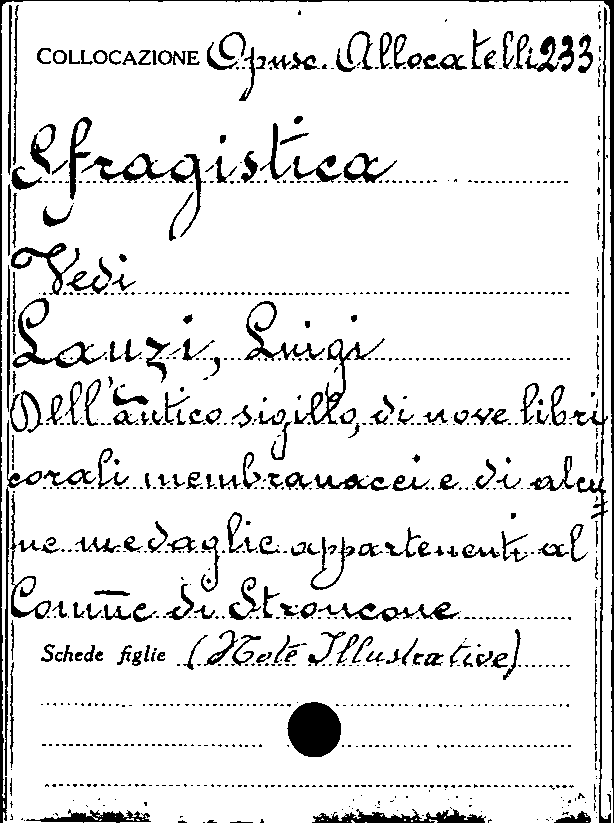 COLLOCAZIONE Opusc. Allocatelli 233
Sfragistica
Vedi
Lanzi, Luigi
Dell'antico sigillo, di nove libri
corali membranacei e di alcu=
ne medaglie appartenenti al
Comūe di Stroncone
Schede figlie (Note Illustrative)